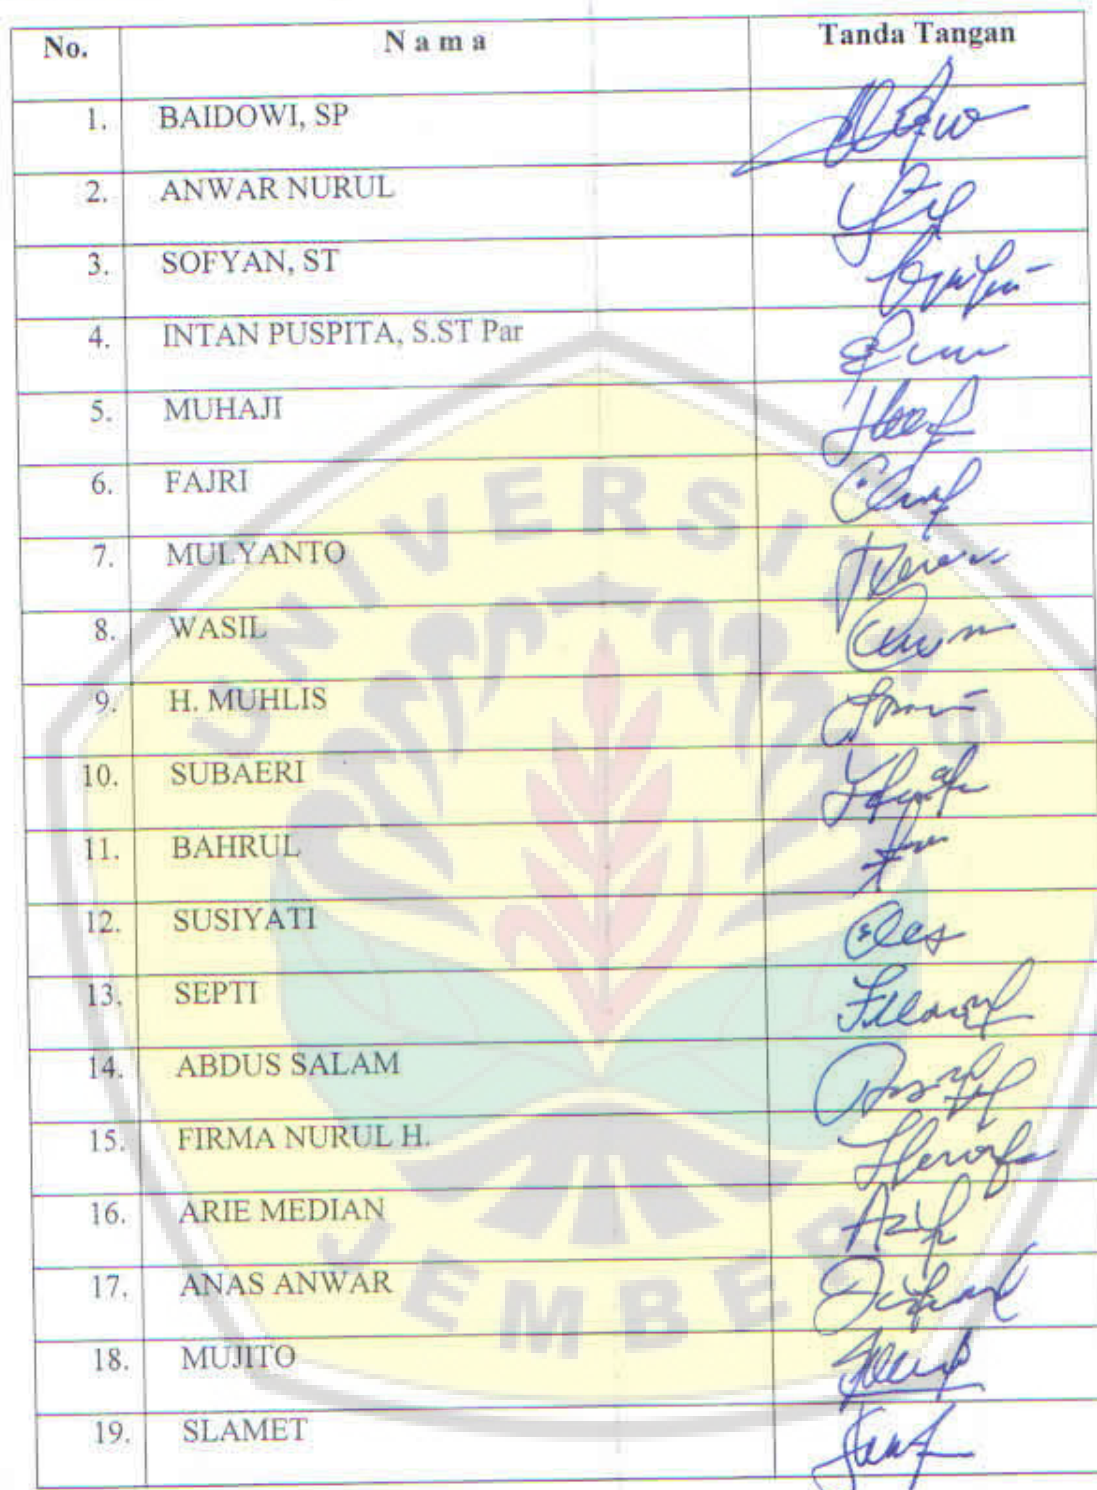 No. N a m a Tanda Tangan
1. BAIDOWI, SP
2. ANWAR NURUL
3. SOFYAN, ST
4. INTAN PUSPITA, S.ST Par
5. MUHAJI
6. FAJRI
7. MULYANTO
8. WASIL
9. H. MUHLIS
10. SUBAERI
11. BAHRUL
12. SUSIYATI
13. SEPTI
14. ABDUS SALAM
15. FIRMA NURUL H.
16. ARIE MEDIAN
17. ANAS ANWAR
18. MUJITO
19. SLAMET
UNIVERSITAS
JEMBER